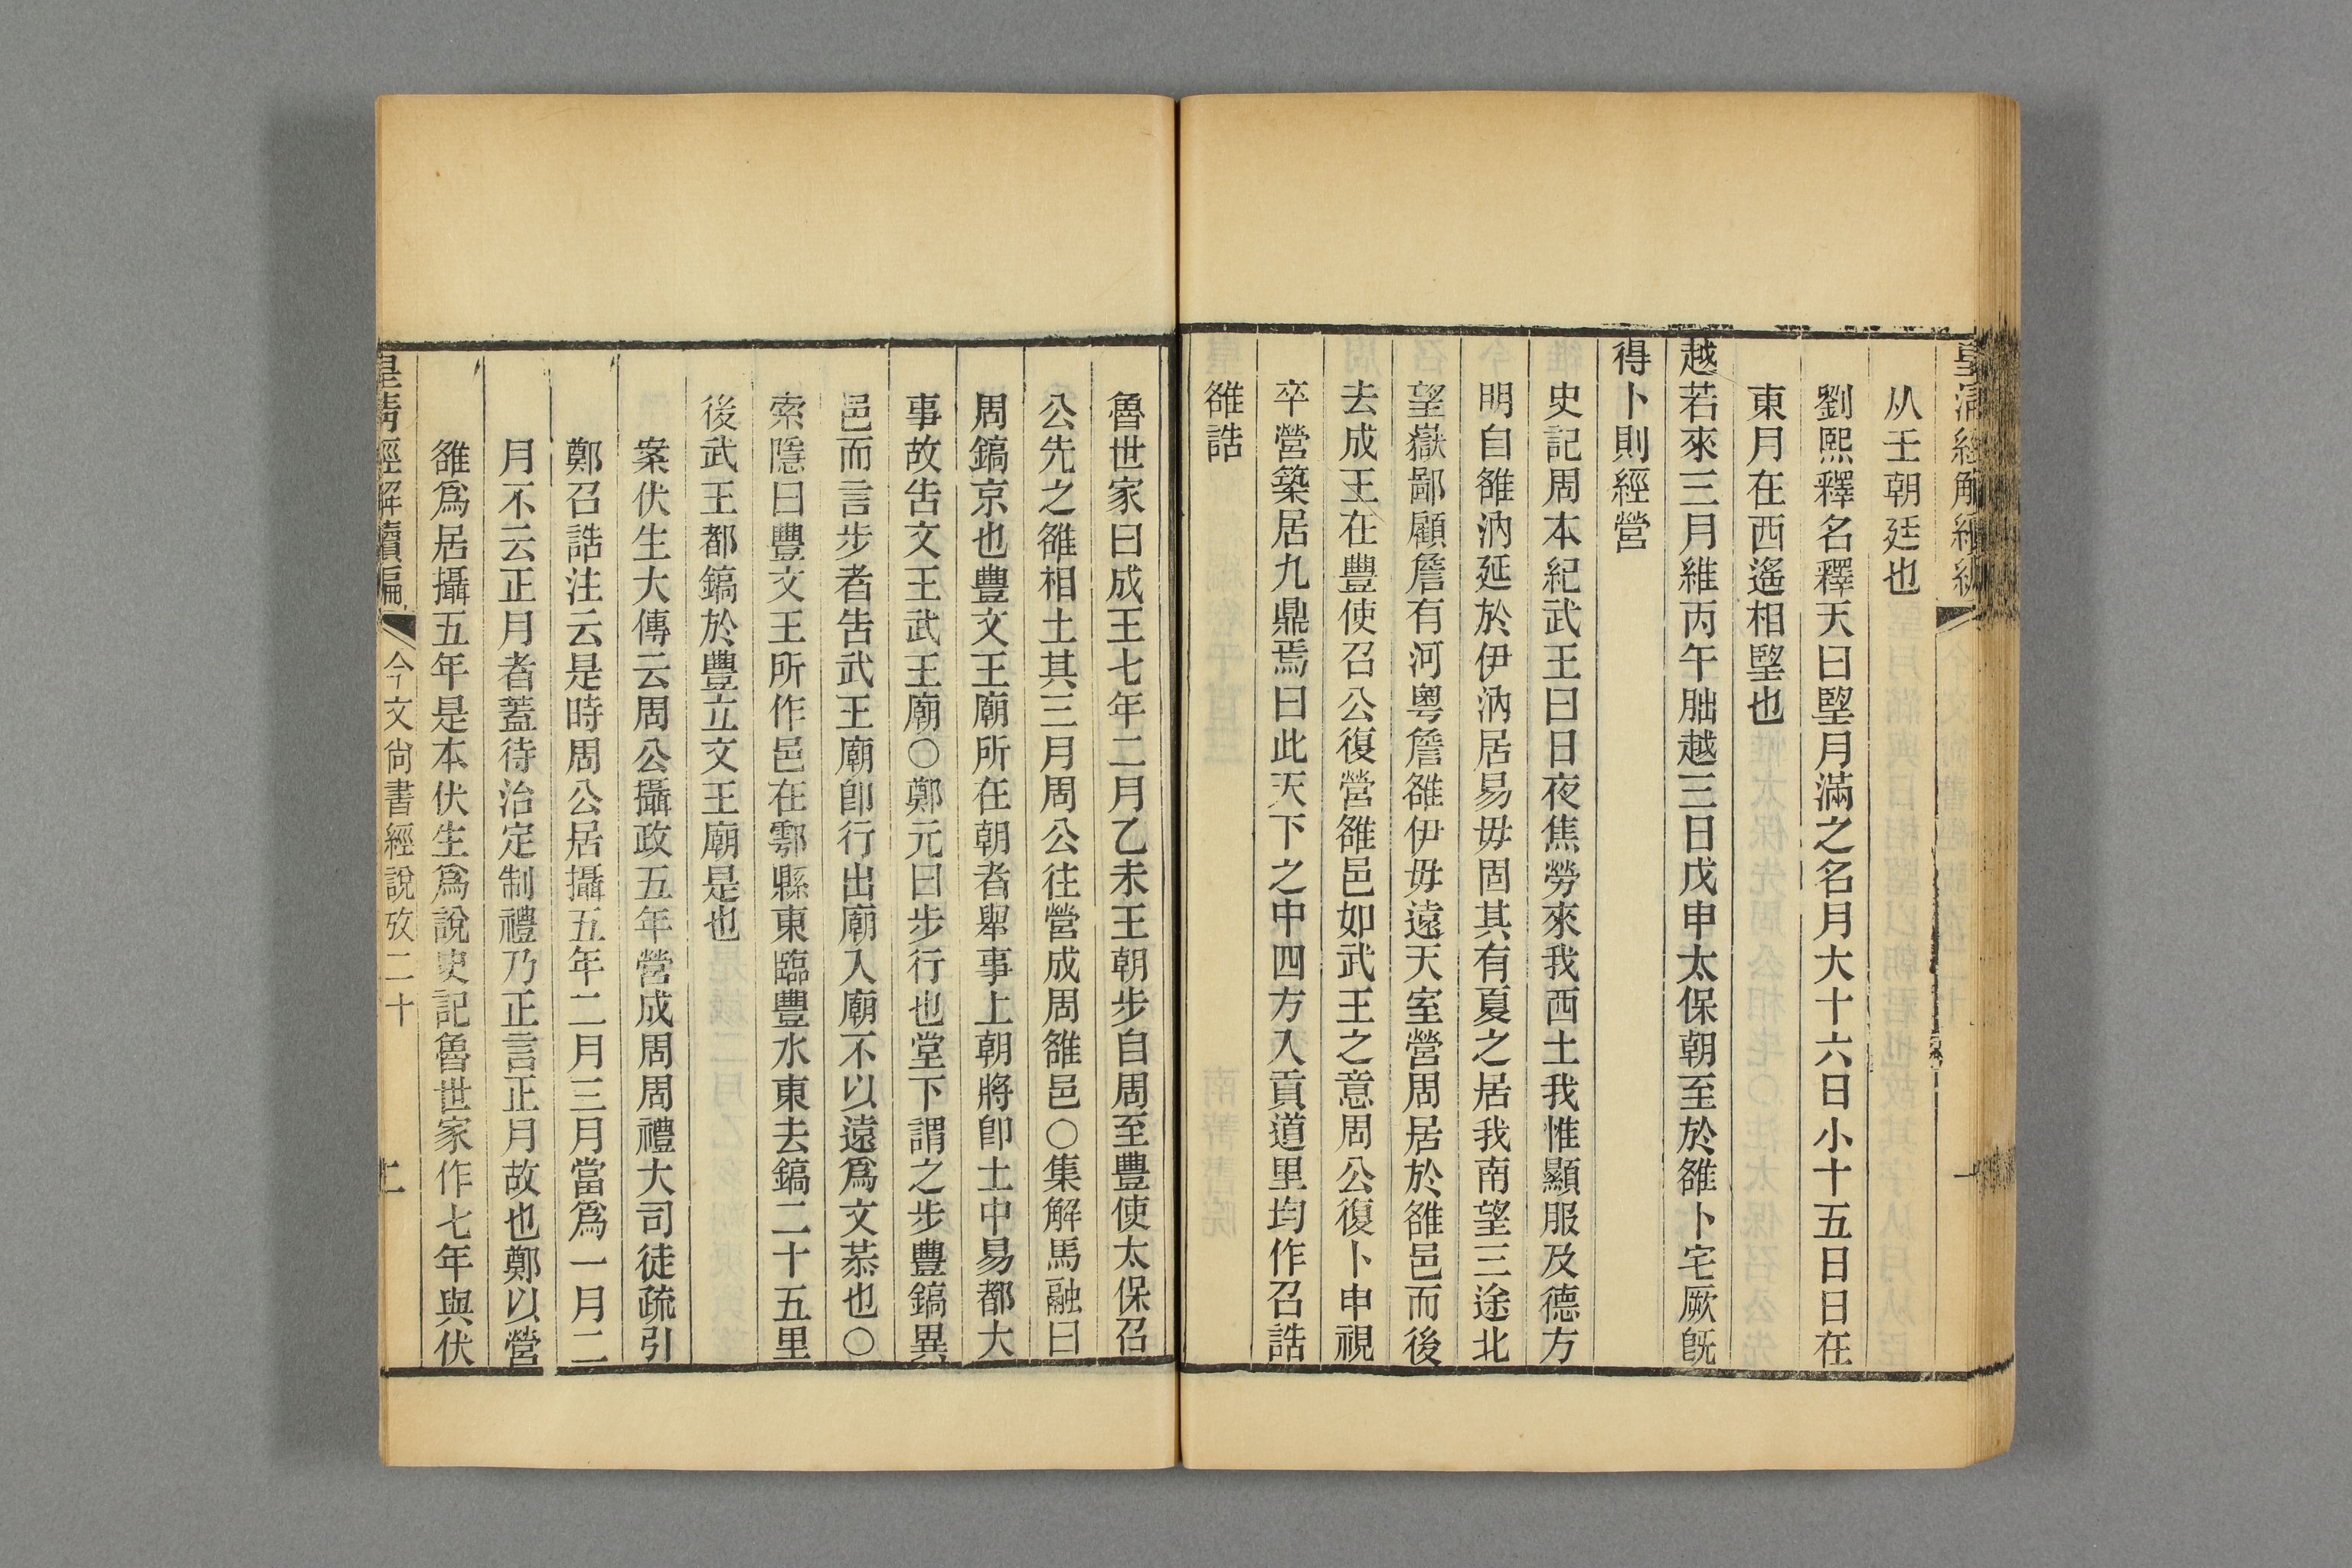 皇清經解續編
一
从𡈼朝廷也
劉熙釋名釋天曰朢月滿之名月大十六日小十五日日在
東月在西遙相朢也
越若來三月維丙午朏越三日戊申太保朝至於雒卜宅厥旣
得卜則經營
史記周本紀武王曰日夜焦勞來我西土我惟顯服及德方
明自雒汭延於伊汭居易毋固其有夏之居我南望三途北
望嶽鄙顧詹有河粵詹雒伊毋遠天室營周居於雒邑而後
去成王在豐使召公復營雒邑如武王之意周公復卜申視
卒營築居九鼎焉曰此天下之中四方入貢道里均作召誥
雒誥
魯世家曰成王七年二月乙未王朝步自周至豐使太保召
公先之雒相土其三月周公往營成周雒邑○集解馬融曰
周鎬京也豐文王廟所在朝者舉事上朝將卽土中易都大
事故告文王武王廟○鄭元曰步行也堂下謂之步豐鎬異
邑而言步者告武王廟卽行出廟入廟不以遠爲文恭也○
索隱曰豐文王所作邑在鄠縣東臨豐水東去鎬二十五里
後武王都鎬於豐立文王廟是也
案伏生大傳云周公攝政五年營成周周禮大司徒疏引
鄭召誥注云是時周公居攝五年二月三月當爲一月二
月不云正月者蓋待治定制禮乃正言正月故也鄭以營
雒爲居攝五年是本伏生爲說史記魯世家作七年與伏
皇清經解續編
今文尙書經說攷二十
二